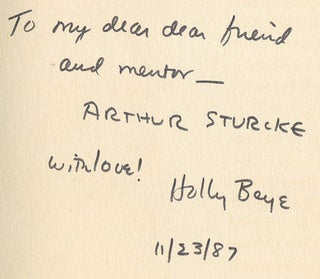 To my dear dear friend
and mentor—
ARTHUR STURCKE
with love!
Holly Beye
11/23/87